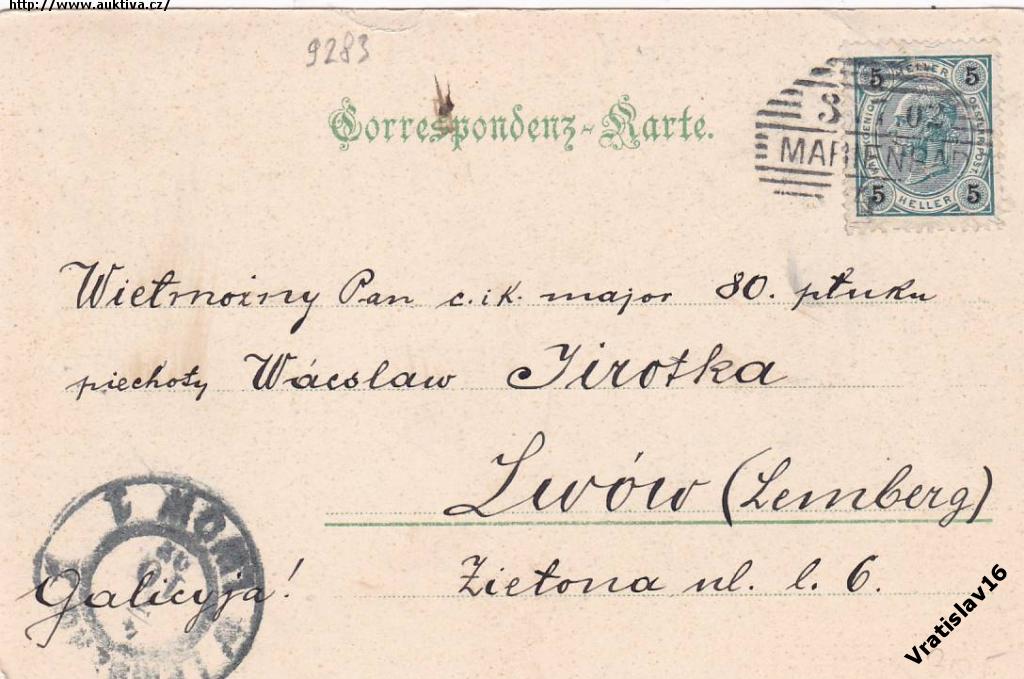 http://www.auktiva.cz/
9283
Correspondenz-Karte.
5 HELLER 5
02
MARIENBAD
5 HELLER 5
Wielmożny Pan c. i k. major 80. pułku
piechoty Wácslaw Jirotka
Lwów (Lemberg)
Galicyja!
Zielona ul. l. 6.
Vratislav16